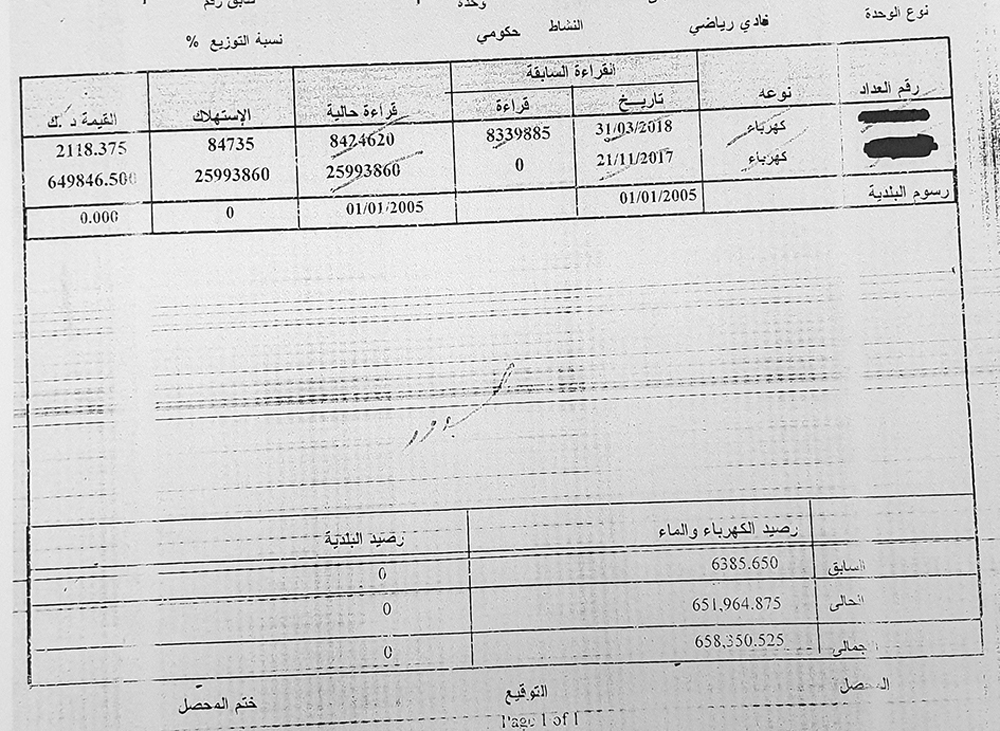 وحدة
نوع الوحدة نادي رياضي النشاط حكومي نسبة التوزيع %
رقم العداد نوعه القراءة السابقة قراءة حالية الإستهلاك القيمة د.ك
تاريخ قراءة
كهرباء 31/03/2018 8339885 8424620 84735 2118.375
كهرباء 21/11/2017 0 25993860 25993860 649846.500
رسوم البلدية 01/01/2005 01/01/2005 0 0.000
رصيد الكهرباء والماء رصيد البلدية
السابق 6385.650 0
الحالى 651,964.875 0
جمالى 658,350.525 0
المحصل التوقيع ختم المحصل
Page 1 of 1